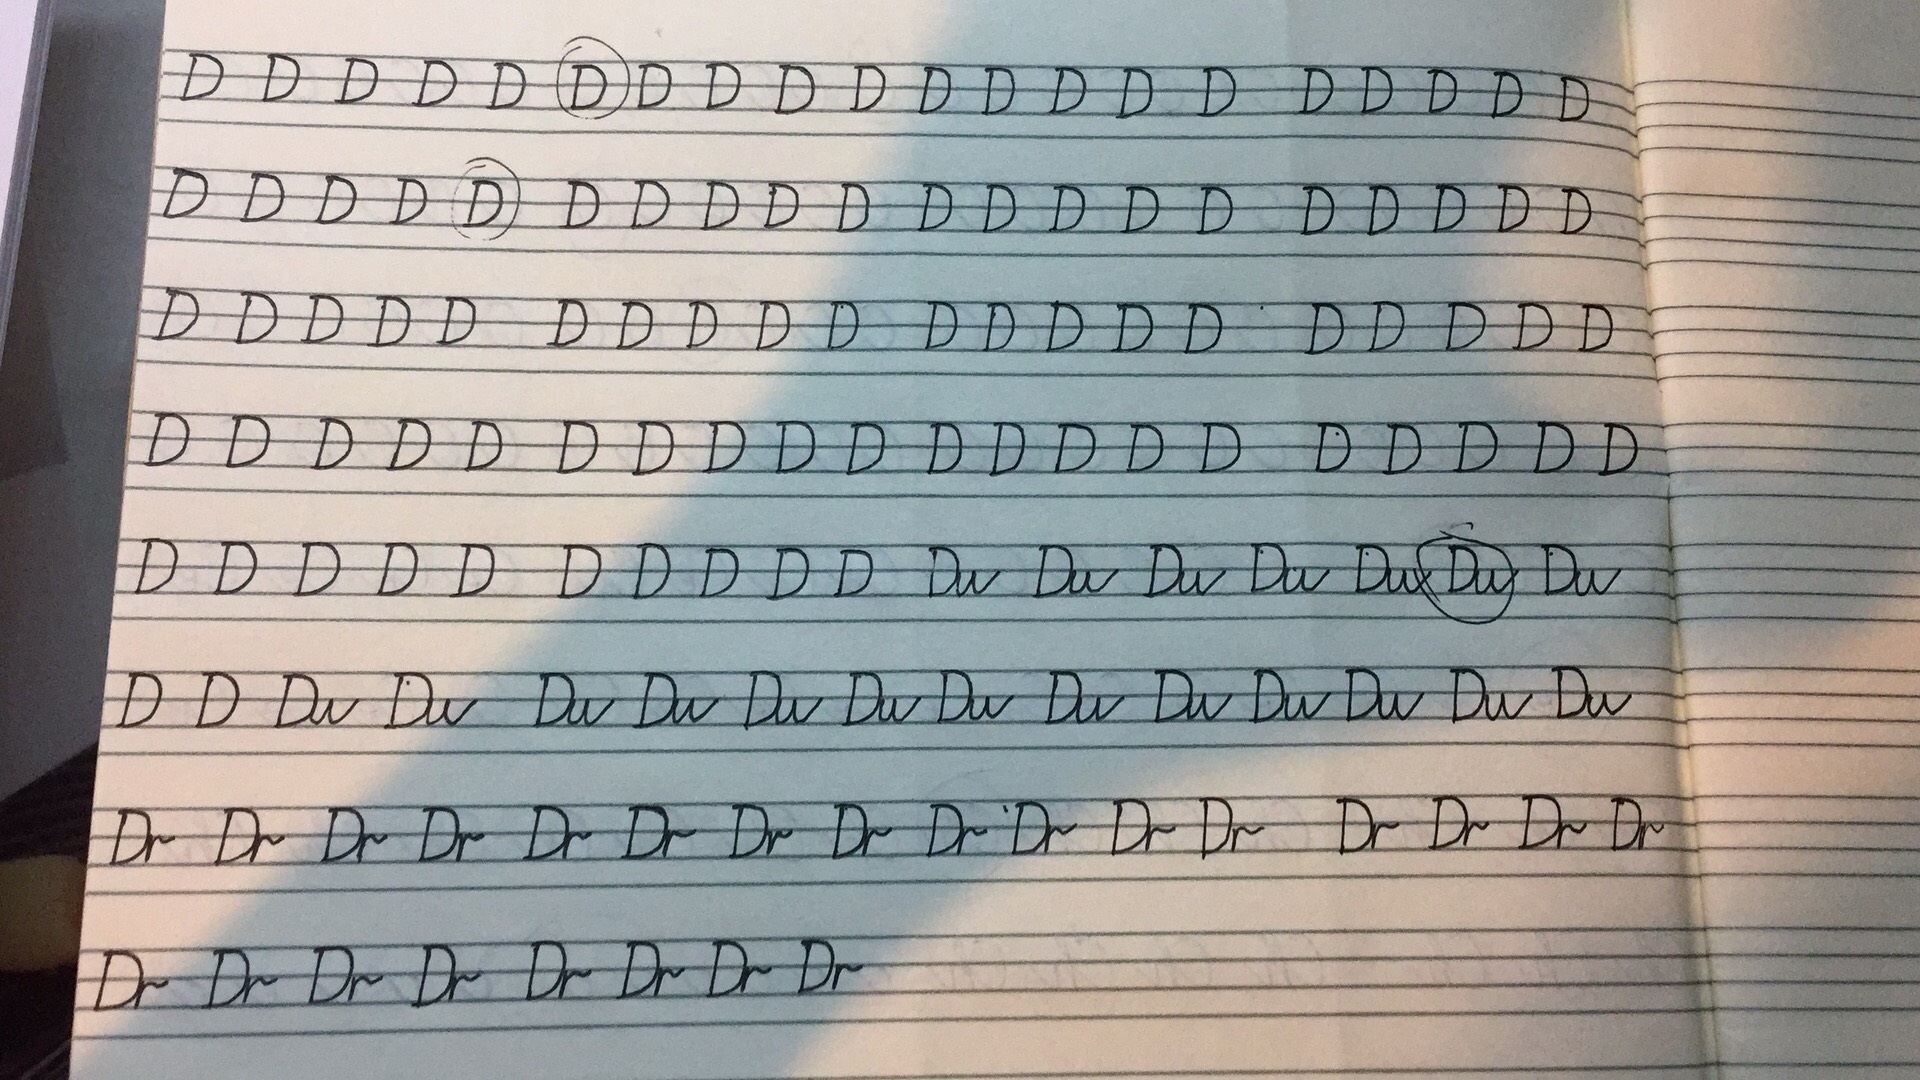 D D D D D D D D D D D D D D D D D D D D
D D D D D D D D D D D D D D D D D D D D
D D D D D D D D D D D D D D D D D D D D
D D D D D D D D D D D D D D D D D D D D
D D D D D D D D D D Du Du Du Du Du Du Du
D D Du Du Du Du Du Du Du Du Du Du Du Du Du
Dr Dr Dr Dr Dr Dr Dr Dr Dr Dr Dr Dr Dr Dr Dr Dr
Dr Dr Dr Dr Dr Dr Dr Dr